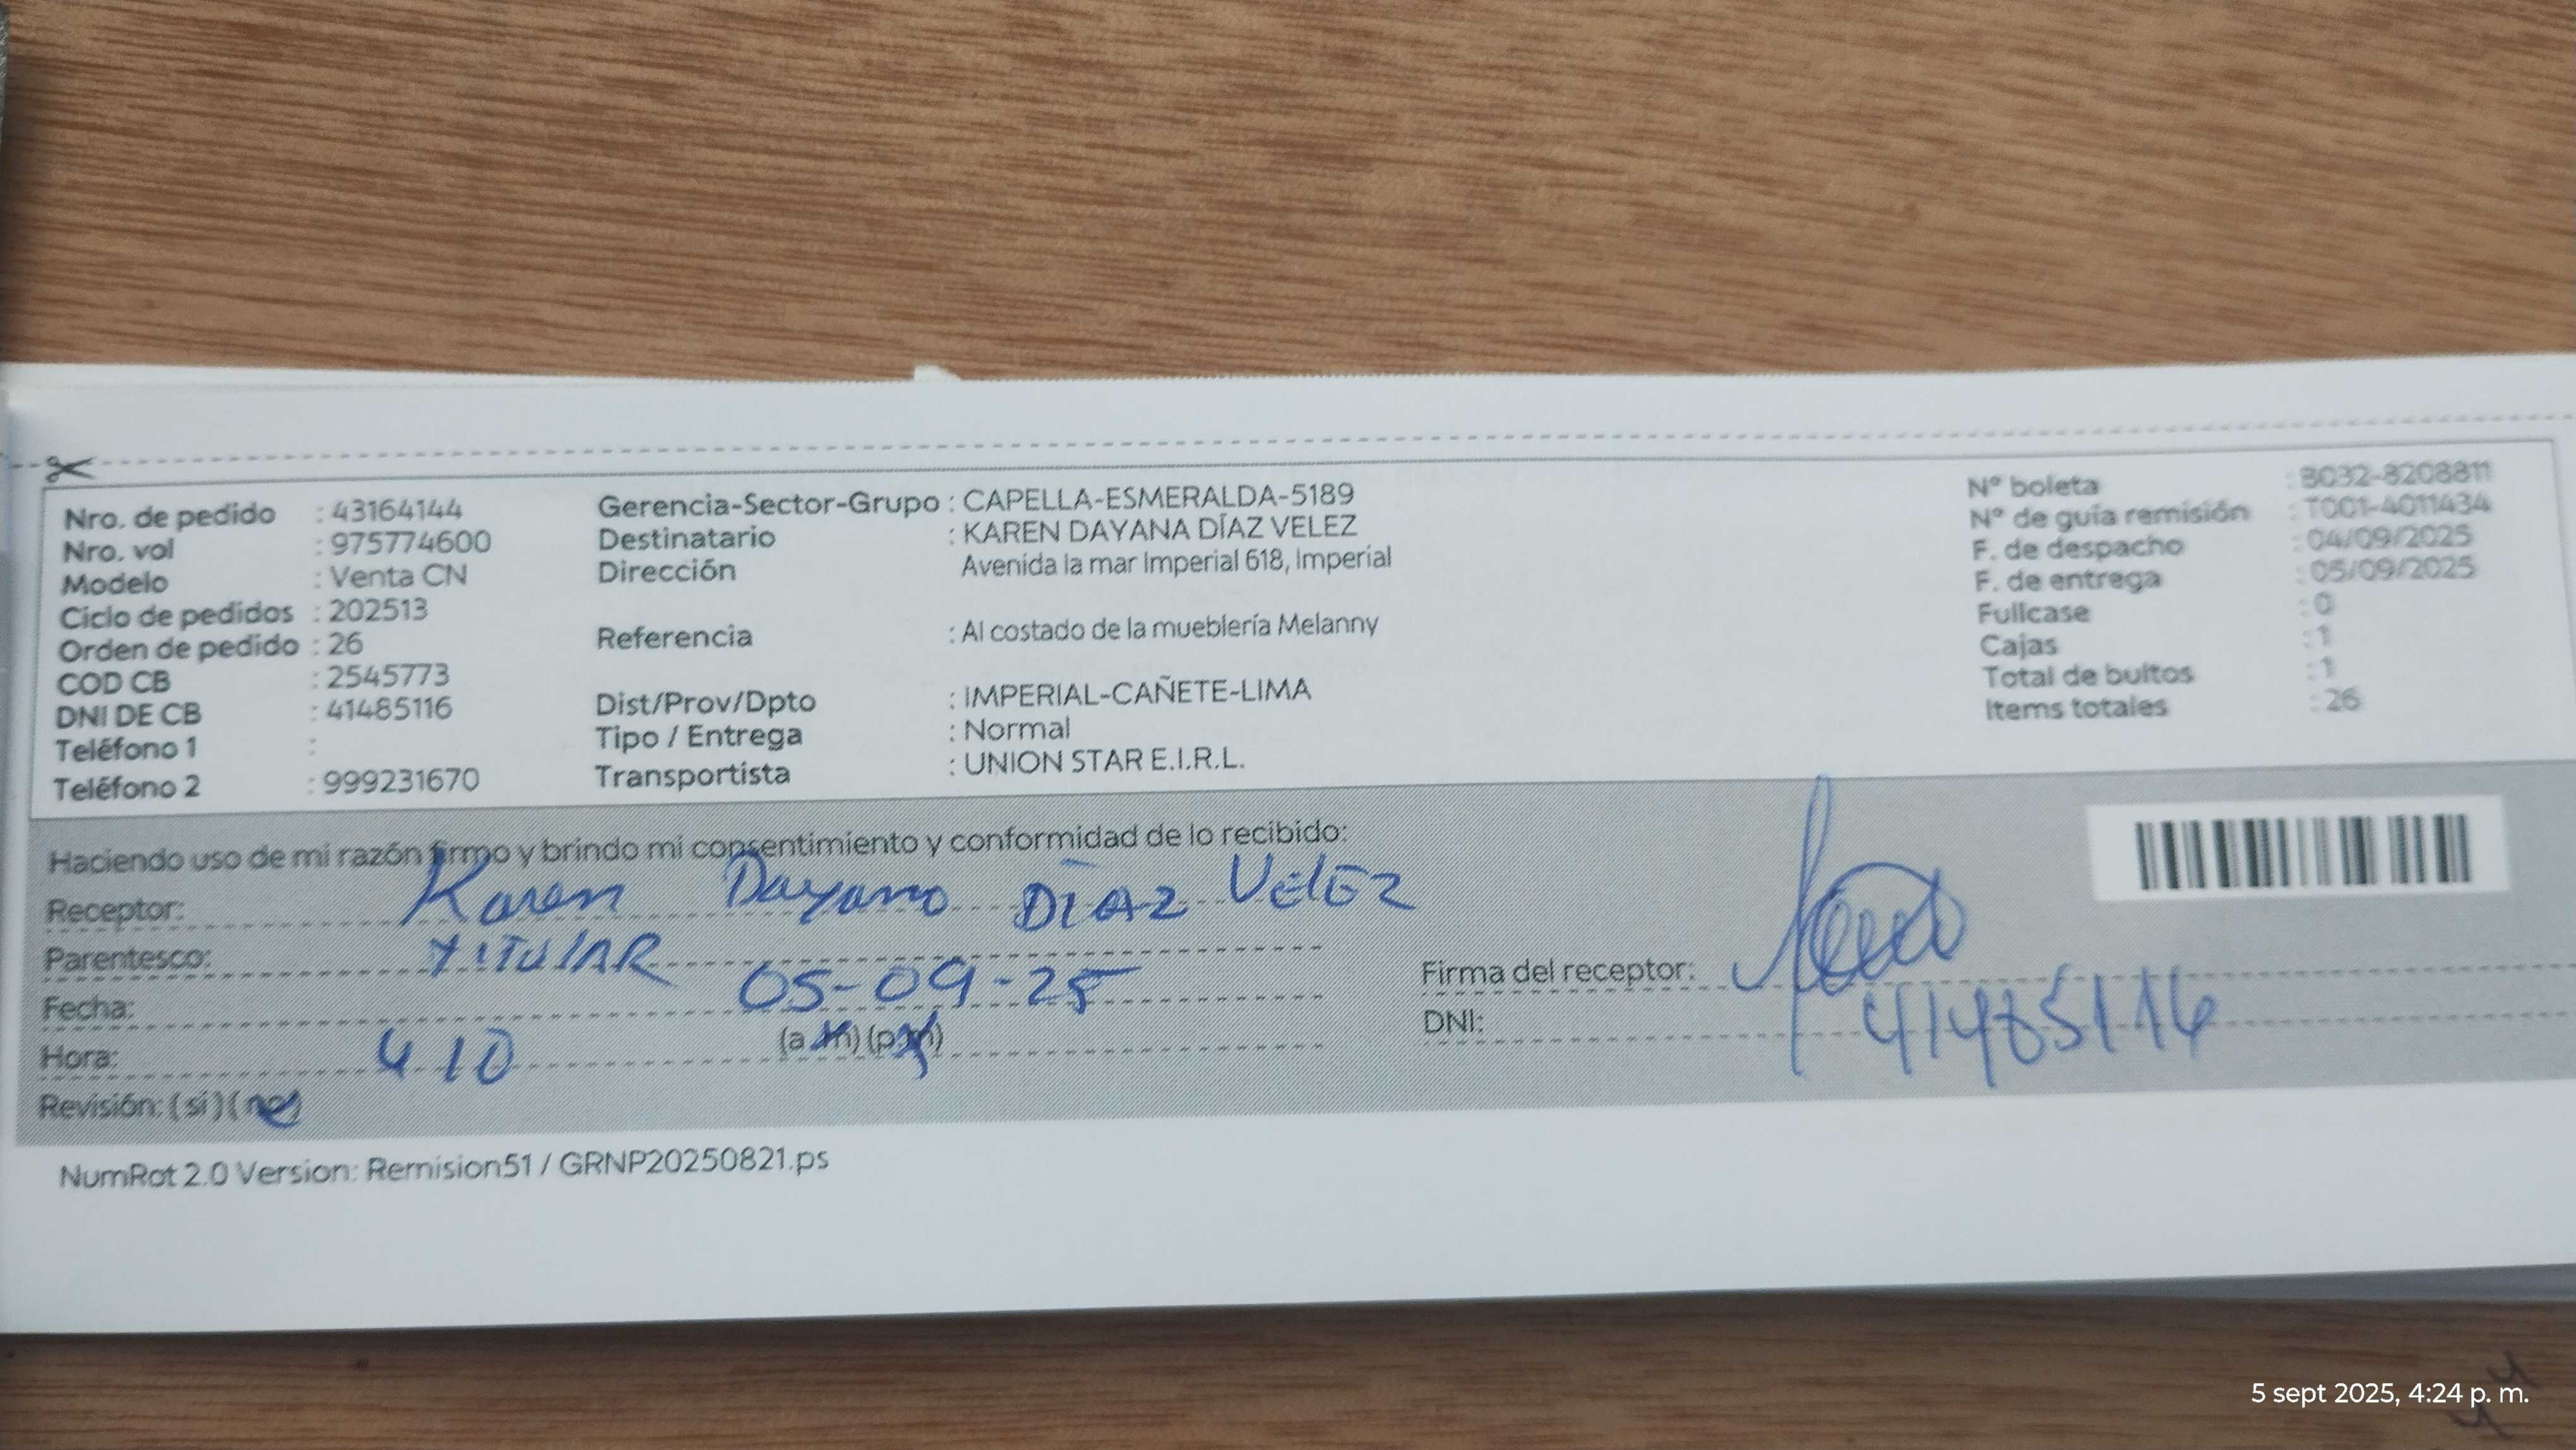 Nro. de pedido : 43164144
Nro. vol : 975774600
Modelo : Venta CN
Ciclo de pedidos : 202513
Orden de pedido : 26
COD CB : 2545773
DNI DE CB : 41485116
Teléfono 1 :
Teléfono 2 : 999231670
Gerencia-Sector-Grupo : CAPELLA-ESMERALDA-5189
Destinatario : KAREN DAYANA DÍAZ VELEZ
Dirección Avenida la mar Imperial 618, Imperial
Referencia : Al costado de la mueblería Melanny
Dist/Prov/Dpto : IMPERIAL-CAÑETE-LIMA
Tipo / Entrega : Normal
Transportista : UNION STAR E.I.R.L.
N° boleta : B032-8208811
N° de guía remisión : T001-4011434
F. de despacho : 04/09/2025
F. de entrega : 05/09/2025
Fullcase : 0
Cajas : 1
Total de bultos : 1
Items totales : 26
Haciendo uso de mi razón firmo y brindo mi consentimiento y conformidad de lo recibido:
Receptor: Karen Dayana DÍAZ VélEZ
Parentesco: TITUlAR
Fecha: 05-09-25
Hora: 4 10 (a.m) (p.m)
Revisión: (si) (no)
Firma del receptor:
DNI: 41485116
NumRot 2.0 Version: Remision51 / GRNP20250821.ps
5 sept 2025, 4:24 p. m.